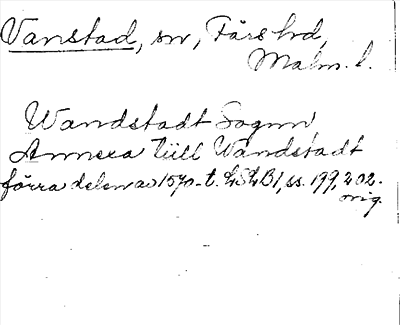 Vanstad, sn, Färs hd,
Malm. l.
Wandstadt Sognn
Annexa tiill Wandstadt
förra delen av 1570-t. LSLB1, ss. 199, 202.
orig.